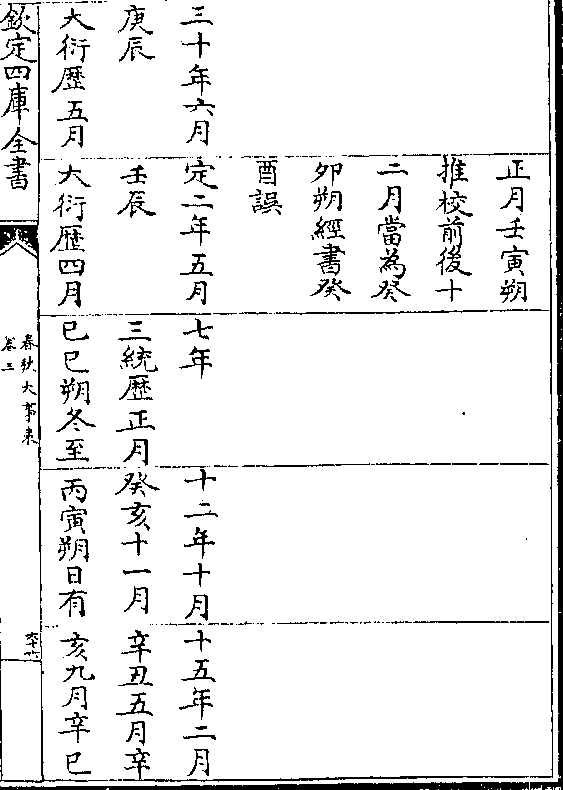 三十年六月
庚辰
大衍歷五月
正月壬寅朔
推校前後十
二月當為癸
卯朔經書癸
酉誤
定二年五月
壬辰
大衍歷四月
七年
三統歷正月
己巳朔冬至
十二年十月
癸亥十一月
丙寅朔日有
十五年二月
辛丑五月辛
亥九月辛巳
欽定四庫全書
春秋大事表
卷三